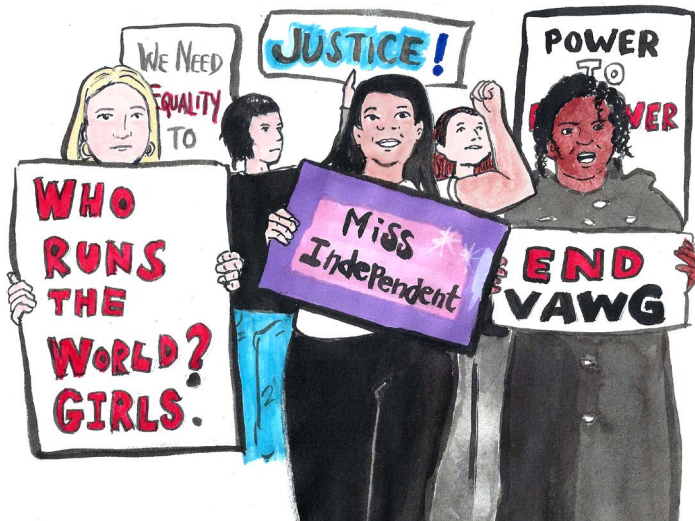 WE NEED
EQUALITY
TO
JUSTICE!
POWER
TO
WHO
RUNS
THE
WORLD?
GIRLS.
Miss
Independent
END
VAWG